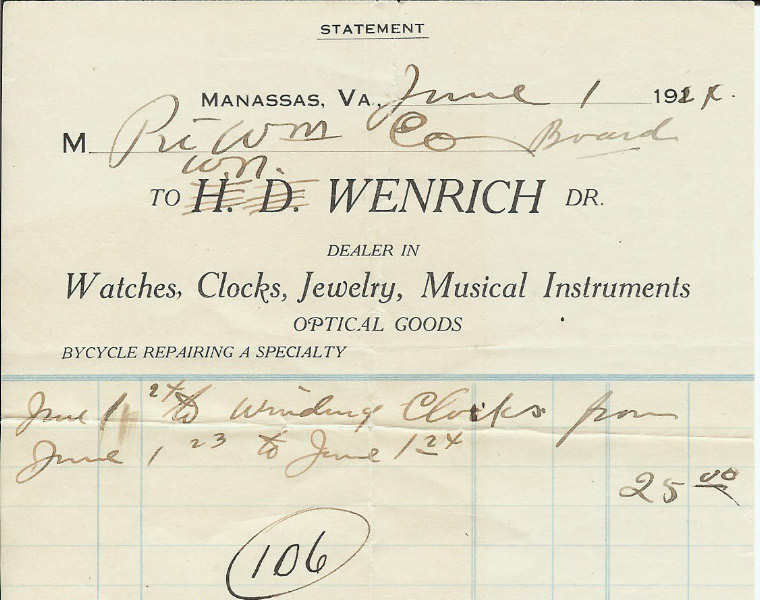 STATEMENT
MANASSAS, VA., June 1 1924.
M Pr Wm Co Board
W.N.
TO H. D. WENRICH DR.
DEALER IN
Watches, Clocks, Jewelry, Musical Instruments
OPTICAL GOODS
BYCYCLE REPAIRING A SPECIALTY
June 1 24 to Winding Clocks from
June 1 23 to June 1 24
25 00
106